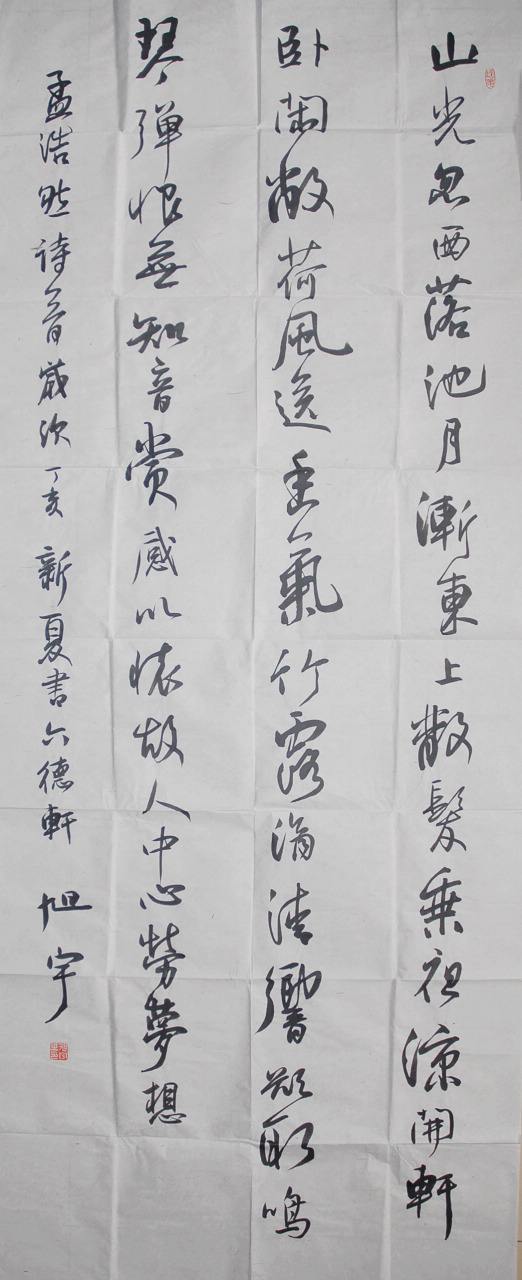 山光忽西落池月漸東上散髮乘夜涼開軒
卧閑敞荷風送香氣竹露滴清響欲取鳴
琴彈恨無知音賞感以懷故人中心勞夢想
孟浩然詩歲次丁亥新夏書六德軒 旭宇